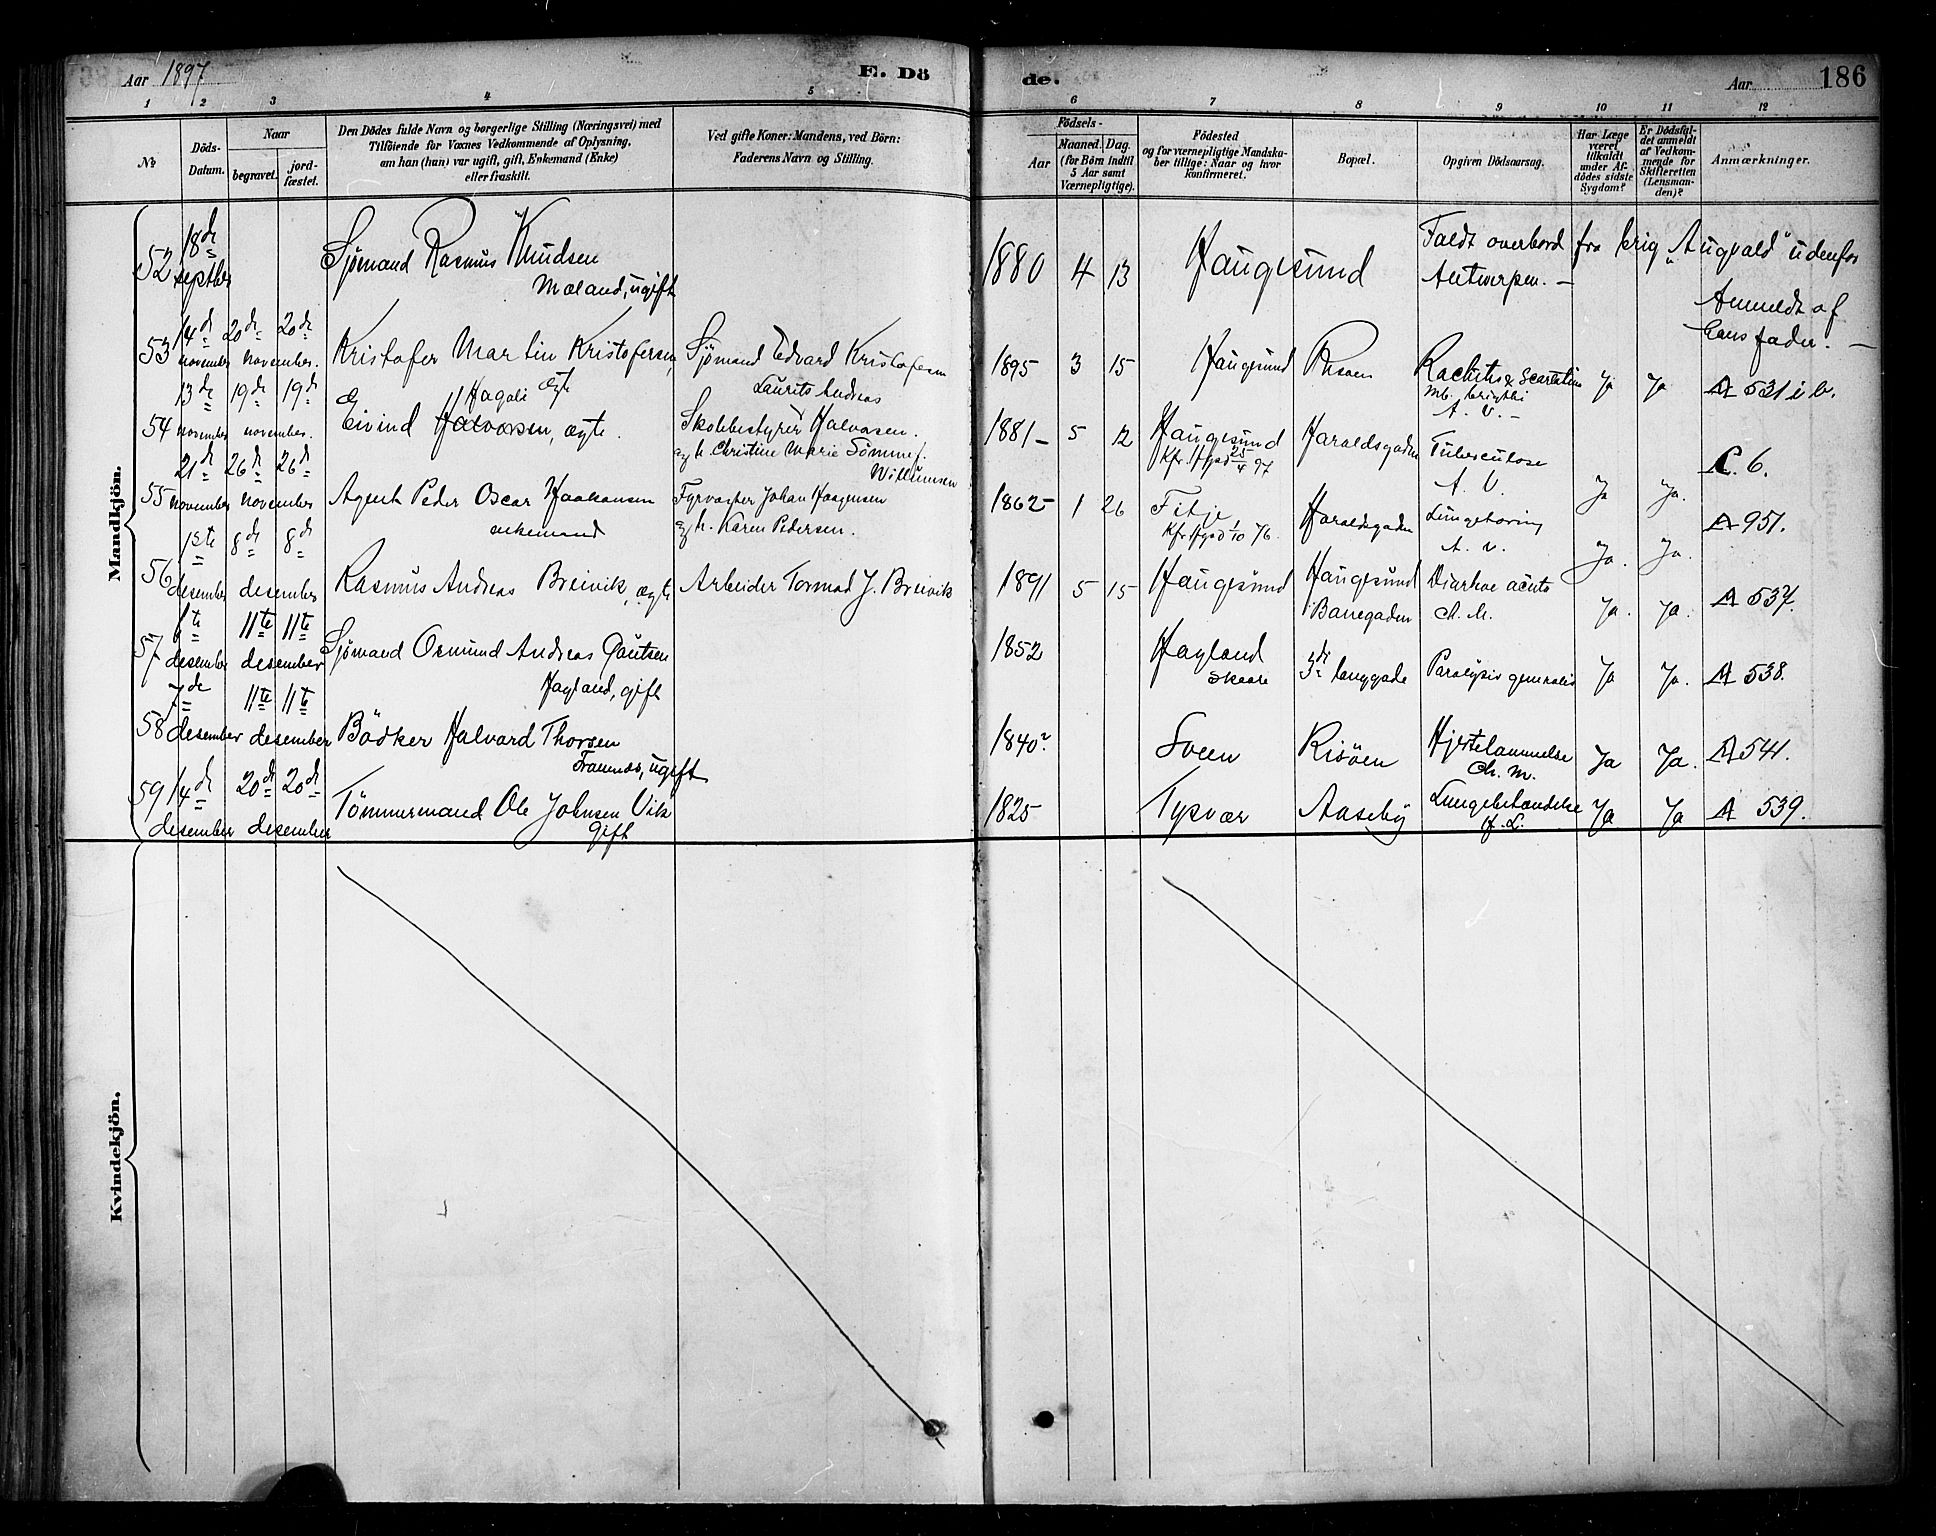 Aar 1897
E. Dö
de.
Aar
186
1 2 3 4 5 6 7 8 9 10 11 12
No
Döds-
Datum.
Naar
begravet.
jord-
fæstet.
Den Dödes fulde Navn og borgerlige Stilling (Næringsvei) med
Tilföiende for Voxnes Vedkommende af Oplysning,
om han (hun) var ugift, gift, Enkemand (Enke)
eller fraskilt.
Ved gifte Koner: Mandens, ved Börn:
Faderens Navn og Stilling.
Födsels-
Aar
Maaned. Dag.
(for Börn indtil
5 Aar samt
Værnepligtige).
Födested
og for værnepligtige Mandska-
ber tillige: Naar og hvor
konfirmeret.
Bopæl.
Opgiven Dödsaarsag.
Har Læge
været
tilkaldt
under Af-
dödes sidste
Sygdom?
Er Dödsfal-
det anmeldt
af Vedkom-
mende for
Skifteretten
(Lensman-
den)?
Anmærkninger.
Mandkjön.
52 18de septbr Sjømand Rasmus Knudsen
Mæland, ugift
1880 4 13 Haugesund Faldt overbord fra brig "Augvald" udenfor
Antwerpen. —
Anmeldt af
hans fader. —
53 14de november 20de 20de november. Kristofer Martin Kristofersen, ægte
Sjømand Edvard Kristofersen
Laurits Andreas
1895 3 15 Haugesund Risøen Rachitis & Scarlatina
mb. brigthi
A. V. —
Ja Ja A 531 i b.
54 13de november 19de 19de november. Hagali
Eivind Halvorsen, ægte.
Skolebestyrer Halvorsen.
og h. Christine Marie Sømme f.
Willumsen
1881 — 5 12 Haugesund
Kfr. Hgsd 25/4 97
Haraldsgaden Tuberculose
A. V.
Ja Ja. C. 6.
55 21de november 26de 26de november Agent Peder Oscar Haakonsen
enkemand
Fyrvogter Johan Haagensen
og h. Karen Pedersen.
1862 — 1 26 Fitje
Kfr Hgsd 1/10 76.
Haraldsgaden Lungetæring
A. V.
Ja. Ja. A 951.
56 1ste desember 8de 8de desember Rasmus Andreas Breivik, ægte Arbeider Tormod J. Breivik
1891 5 15 Haugesund Haugesund
Banegaden
Diarhoe acuta
Ch. M.
Ja. Ja. A 537.
57 6te desember 11te 11te desember Sjømand Osmund Andreas Gautsen
Hagland, gift
1852 Hagland
Skaare
3die langgade Paralysis generalis Ja Ja. A 538.
58 7de desember 11te 11te desember Bödker Halvard Thorsen
Framnæs, ugift
1840? Sveen Risöen Hjertelammelse
Ch. M.
Ja Ja. A 541.
59 14de desember 20de 20de desember Tömmermand Ole Johnsen Vik
gift
1825 Tysvær Aaseby Lungebetændelse
H. L.
Ja Ja A 539.
Kvindekjön.